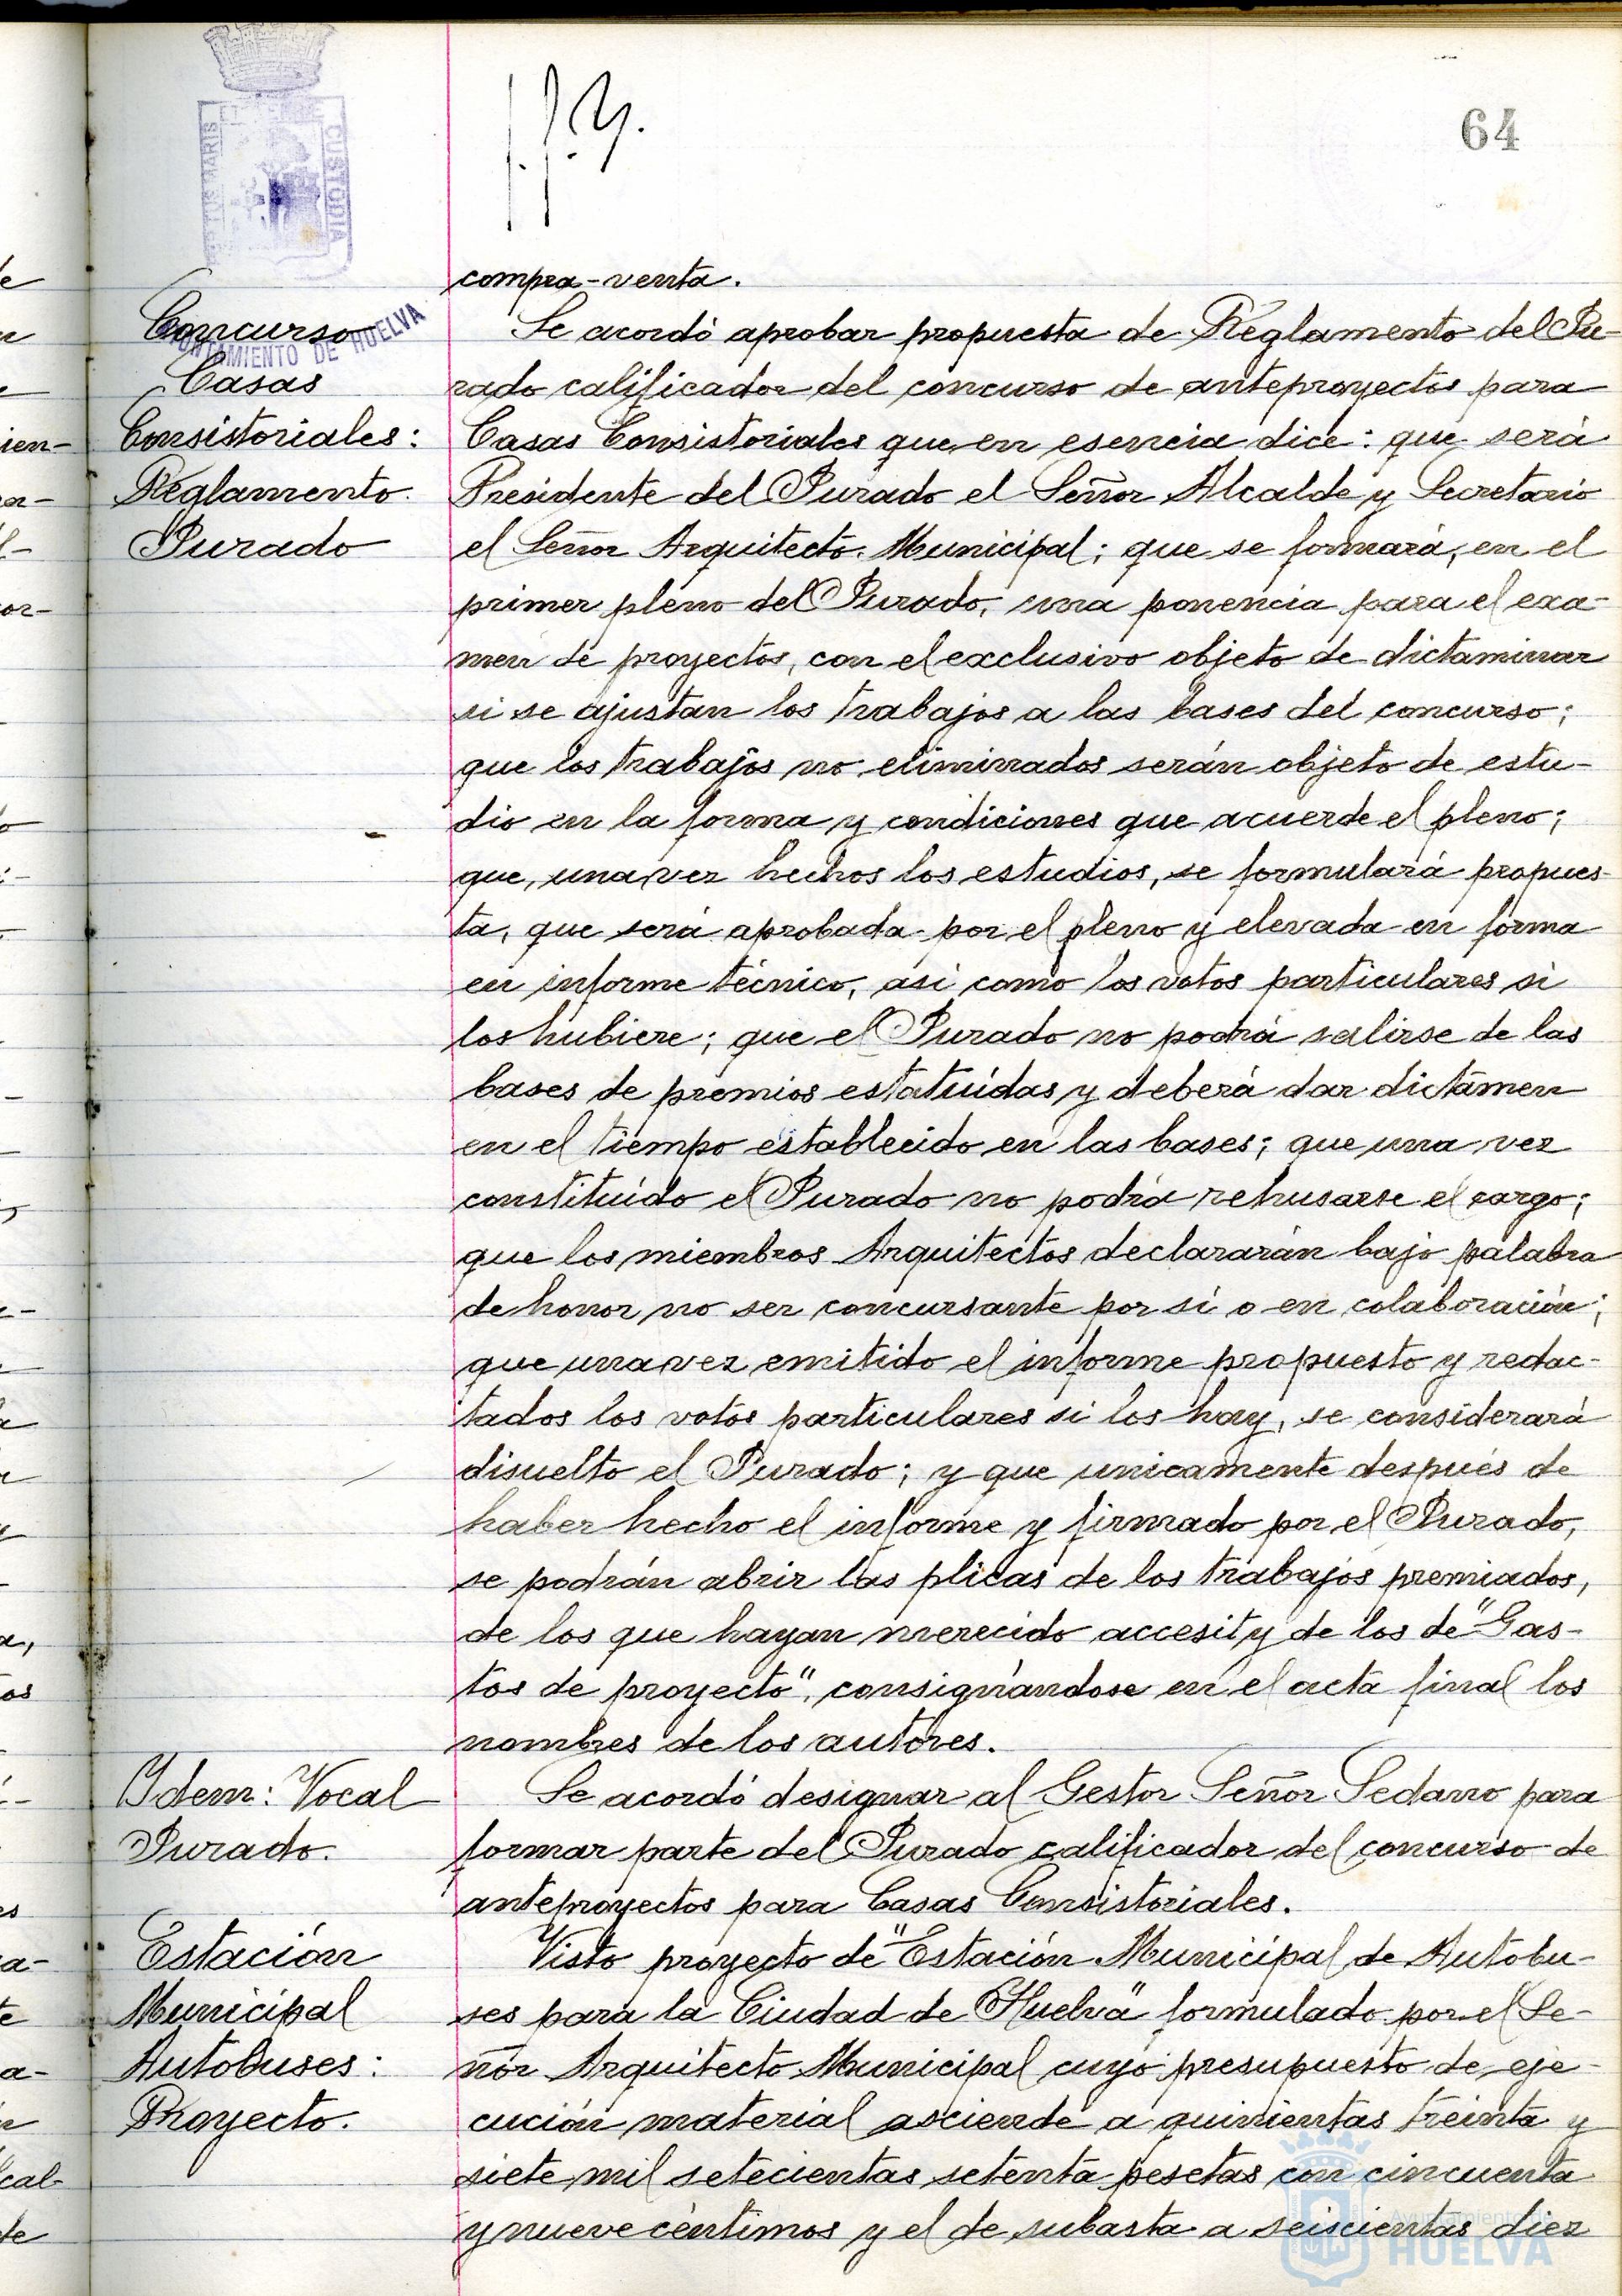 64
compra-venta.
Concurso
Casas
Consistoriales:
Reglamento.
Jurado
Se acordó aprobar propuesta de Reglamento del Ju-
rado calificador del concurso de anteproyectos para
Casas Consistoriales que en esencia dice: que será
Presidente del Jurado el Señor Alcalde y Secretario
el Señor Arquitecto Municipal; que se formará, en el
primer pleno del Jurado, una ponencia para el exa-
men de proyectos, con el exclusivo objeto de dictaminar
si se ajustan los trabajos a las bases del concurso;
que los trabajos no eliminados serán objeto de estu-
dio en la forma y condiciones que acuerde el pleno;
que, una vez hechos los estudios, se formulará propues-
ta, que será aprobada por el pleno y elevada en forma
en informe técnico, asi como los votos particulares si
los hubiere; que el Jurado no podrá salirse de las
bases de premios estatuídas y deberá dar dictámen
en el tiempo establecido en las bases; que una vez
constituído el Jurado no podrá rehusarse el cargo;
que los miembros Arquitectos declararán bajo palabra
de honor no ser concursante por sí o en colaboración;
que una vez emitido el informe propuesto y redac-
tados los votos particulares si los hay, se considerará
disuelto el Jurado; y que unicamente después de
haber hecho el informe y firmado por el Jurado,
se podrán abrir las plicas de los trabajos premiados,
de los que hayan merecido accesit y de los de "Gas-
tos de proyecto", consignándose en el acta final los
nombres de los autores.
Idem: Vocal
Jurado.
Se acordó designar al Gestor Señor Sedano para
formar parte del Jurado calificador del concurso de
anteproyectos para Casas Consistoriales.
Estación
Municipal
Autobuses:
Proyecto.
Visto proyecto de "Estación Municipal de Autobu-
ses para la Ciudad de Huelva" formulado por el Se-
ñor Arquitecto Municipal cuyo presupuesto de eje-
cución material asciende a quinientas treinta y
siete mil setecientas setenta pesetas con cincuenta
y nueve céntimos y el de subasta a seiscientas diez
CUSTODIA
AYUNTAMIENTO DE HUELVA
Ayuntamiento de
HUELVA